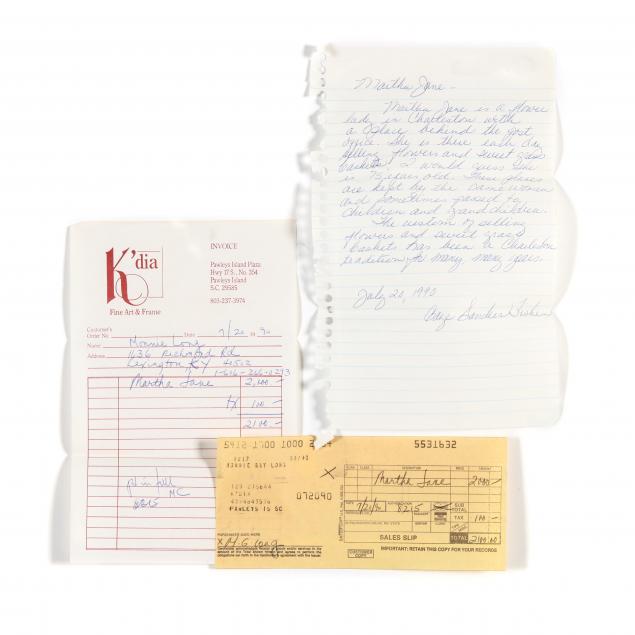 Martha Jane -
Martha Jane is a flower
lady in Charleston with
a place behind the post
office. She is there each day
selling flowers and sweet grass
baskets. I would guess she
is 75 years old. These places
are kept by the same women
and sometimes passed to
children and grandchildren.
The custom of selling
flowers and sweet grass
baskets has been a Charleston
tradition for many many years.
July 20, 1990
K'dia
Fine Art & Frame
INVOICE
Pawleys Island Plaza
Hwy 17 S., No. 354
Pawleys Island
S.C. 29585
803-237-3974
Customer's
Order No. Date 7/20 19 90
Name Monnie Long
Address 1636 Richmond Rd
Lexington KY 40502
1-606-266-0293
Martha Jane 2,000 -
tx 100 -
2100 -
pd in full
MC
8215
5531632
070290
PAWLEYS IS SC
X M. G. Long
Martha Jane 2000 -
7/21/90 8215
SUB
TOTAL
TAX 100 -
TOTAL 2100.00
SALES SLIP
CUSTOMER
COPY
IMPORTANT: RETAIN THIS COPY FOR YOUR RECORDS